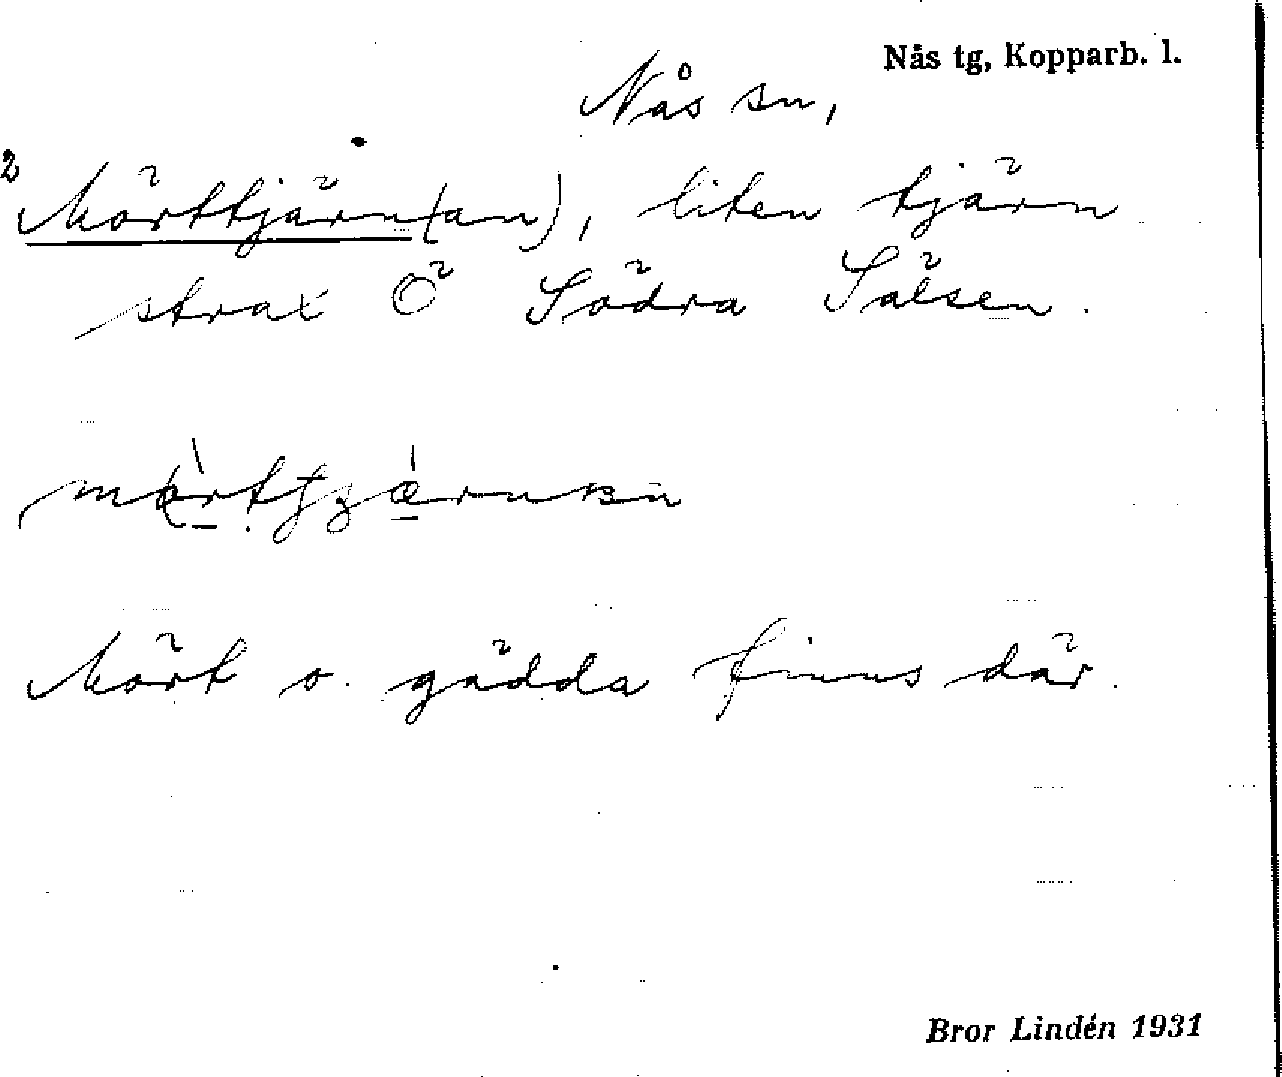 Nås tg, Kopparb. l.
Nås sn,
2 Mörttjärn(an), liten tjärn
strax Ö Södra Sälsen.
Mört o. gädda finns där.
Bror Lindén 1931